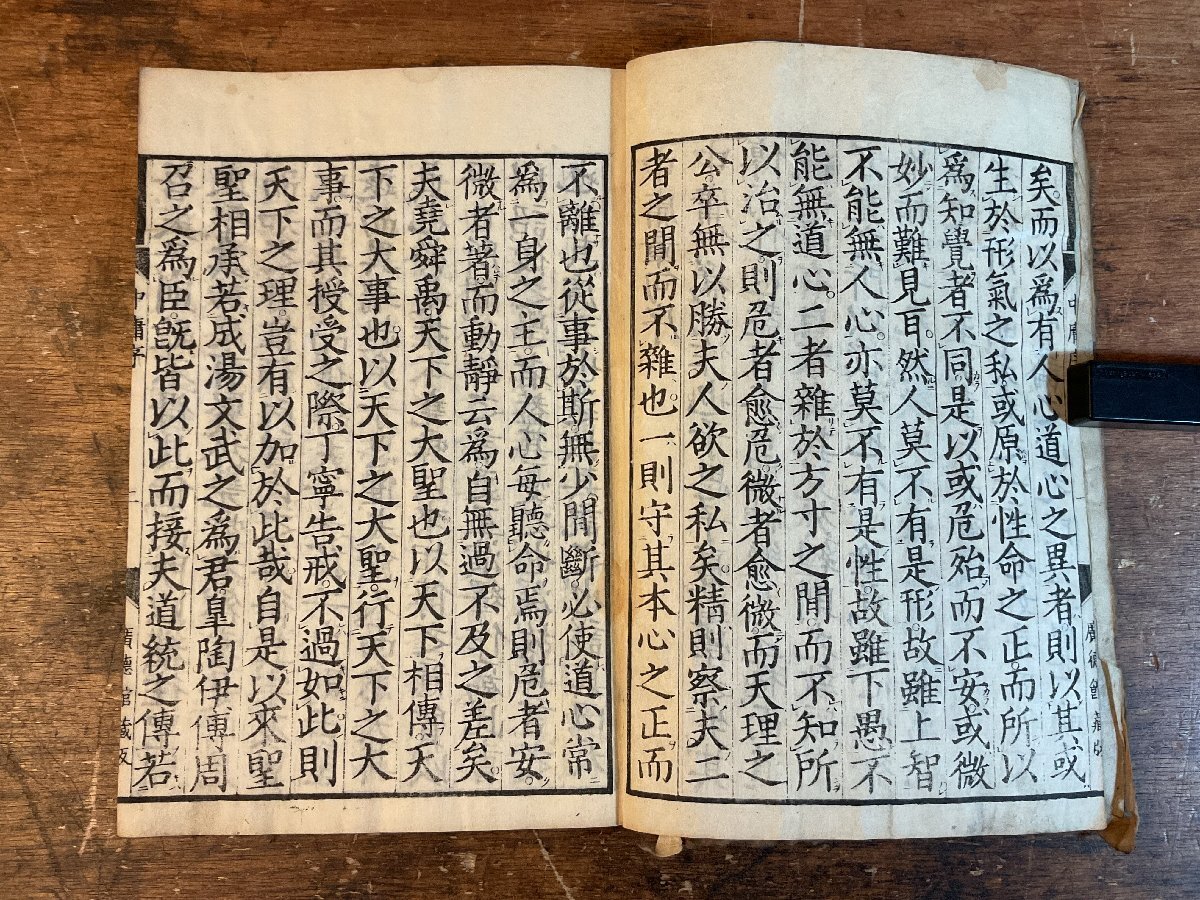 矣而以爲有人心道心之異者則以其或
生於形氣之私或原於性命之正而所以
爲知覺者不同是以或危殆而不安或微
妙而難見耳然人莫不有是形故雖上智
不能無人心亦莫不有是性故雖下愚不
能無道心二者雜於方寸之閒而不知所
以治之則危者愈危微者愈微而天理之
公卒無以勝夫人欲之私矣精則察夫二
者之閒而不雜也一則守其本心之正而
不離也從事於斯無少閒斷必使道心常
爲一身之主而人心每聽命焉則危者安
微者著而動靜云爲自無過不及之差矣
夫堯舜禹天下之大聖也以天下相傳天
下之大事也以天下之大聖行天下之大
事而其授受之際丁寧告戒不過如此則
天下之理豈有以加於此哉自是以來聖
聖相承若成湯文武之爲君皐陶伊傅周
召之爲臣旣皆以此而接夫道統之傳若
中庸序
廣德館藏板